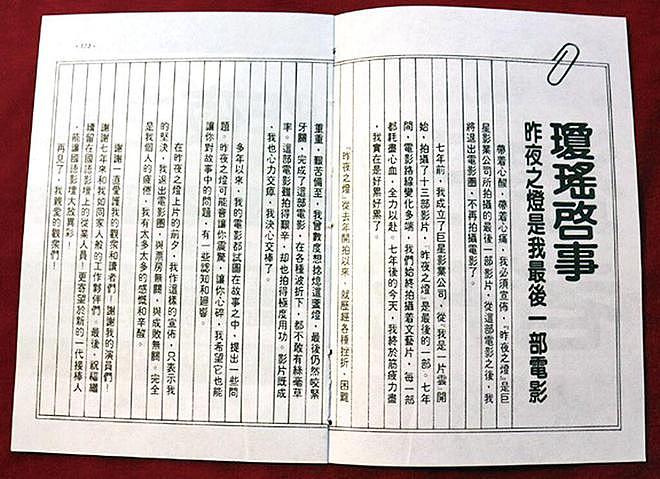 瓊瑤啓事
昨夜之燈是我最後一部電影
帶着心酸，帶着心痛，我必須宣佈，「昨夜之燈」是巨
星影業公司所拍攝的最後一部影片，從這部電影之後，我
將退出電影圈，不再拍攝電影了。
七年前，我成立了巨星影業公司，從「我是一片雲」開
始，拍攝了十三部影片，「昨夜之燈」是最後的一部。七年
間，電影路線變化多端，我們始終拍攝着文藝片，每一部
都耗盡心血，全力以赴。七年後的今天，我終於筋疲力盡
，我實在是好累好累了。
「昨夜之燈」從去年開拍以來，就歷經各種挫折，困難
重重，艱苦備至，我曾數度想捻熄這盞燈，最後仍然咬緊
牙關，完成了這部電影，在各種波折下，都不敢有絲毫草
率。這部電影雖拍得艱辛，却也拍得極度用功。影片既成
，我也心力交瘁，我決心交棒了。
多年以來，我的電影都試圖在故事之中，提出一些問
題。昨夜之燈可能會讓你震驚，讓你心碎，我希望它也能
讓你對故事中的問題，有一些認知和迴響。
在昨夜之燈上片的前夕，我作這樣的宣佈，只表示我
的堅決，我退出電影圈，與票房無關，與成敗無關。完全
是我個人的疲倦，我有太多太多的感慨和辛酸。
謝謝一直愛護我的觀衆和讀者們！謝謝我的演員們！
謝謝七年來和我如同家人般的工作夥伴們。最後，祝福繼
續留在國語影壇上的從業人員！更寄望於新的一代接棒人
，能讓國語影壇大放異彩！
再見了，我親愛的觀衆們！
·173·